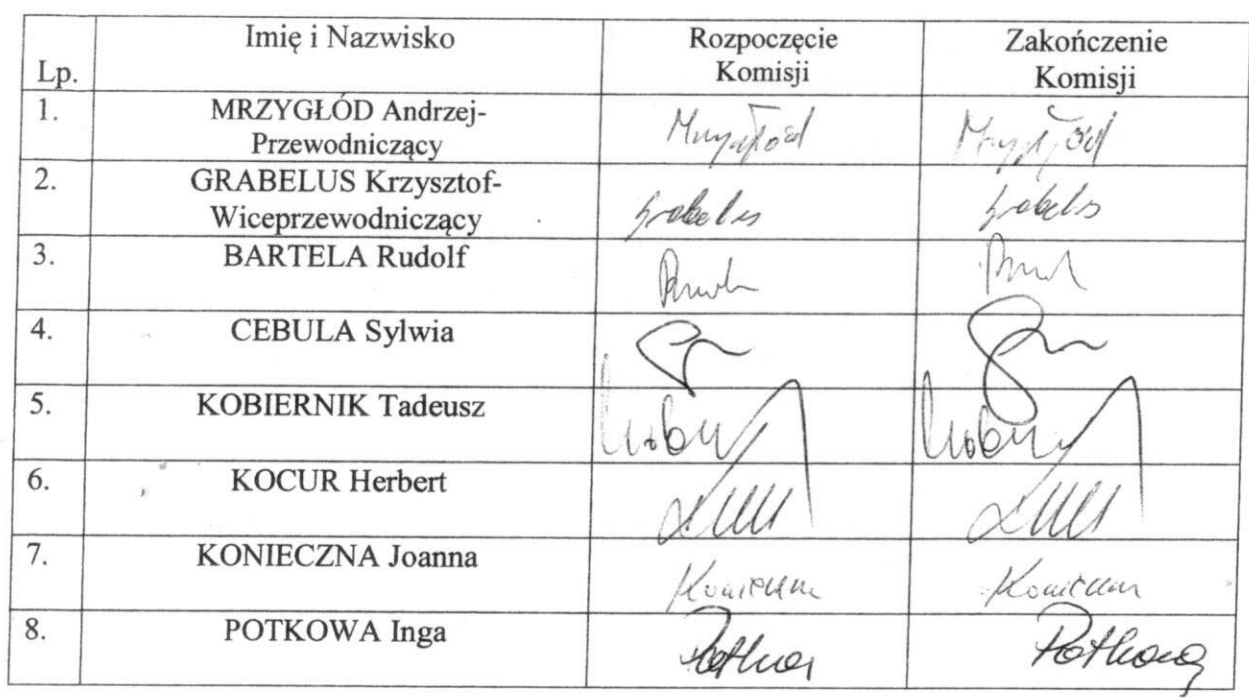 Lp. Imię i Nazwisko Rozpoczęcie Komisji Zakończenie Komisji
1. MRZYGŁÓD Andrzej-
Przewodniczący Mrzygłód Mrzygłód
2. GRABELUS Krzysztof-
Wiceprzewodniczący Grabelus Grabelus
3. BARTELA Rudolf
4. CEBULA Sylwia
5. KOBIERNIK Tadeusz
6. KOCUR Herbert
7. KONIECZNA Joanna
8. POTKOWA Inga Potkowa